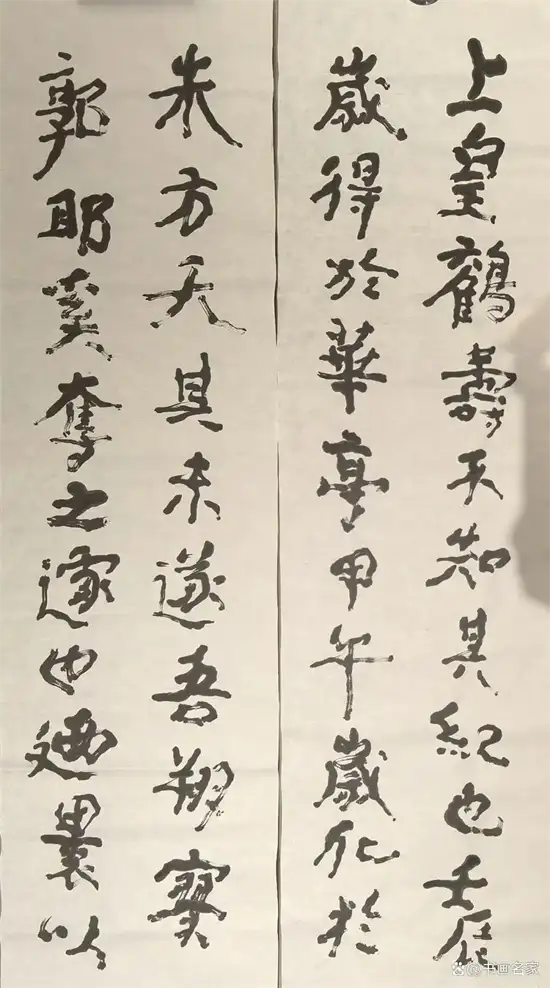 上皇鶴壽不知其紀也壬辰
歲得於華亭甲午歲化於
朱方天其未遂吾翔寥
郭耶奚奪之遽也廼裹以
书画名家